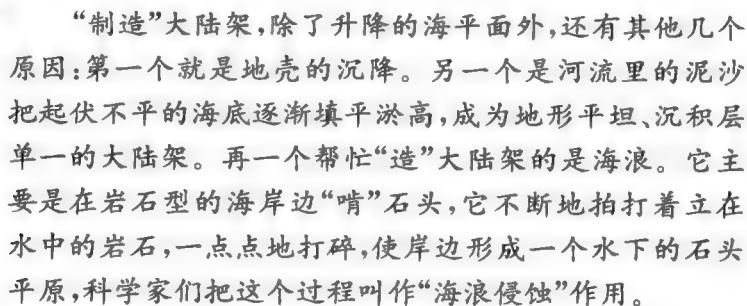 “制造”大陆架,除了升降的海平面外,还有其他几个
原因:第一个就是地壳的沉降。另一个是河流里的泥沙
把起伏不平的海底逐渐填平淤高,成为地形平坦、沉积层
单一的大陆架。再一个帮忙“造”大陆架的是海浪。它主
要是在岩石型的海岸边“啃”石头,它不断地拍打着立在
水中的岩石,一点点地打碎,使岸边形成一个水下的石头
平原,科学家们把这个过程叫作“海浪侵蚀”作用。